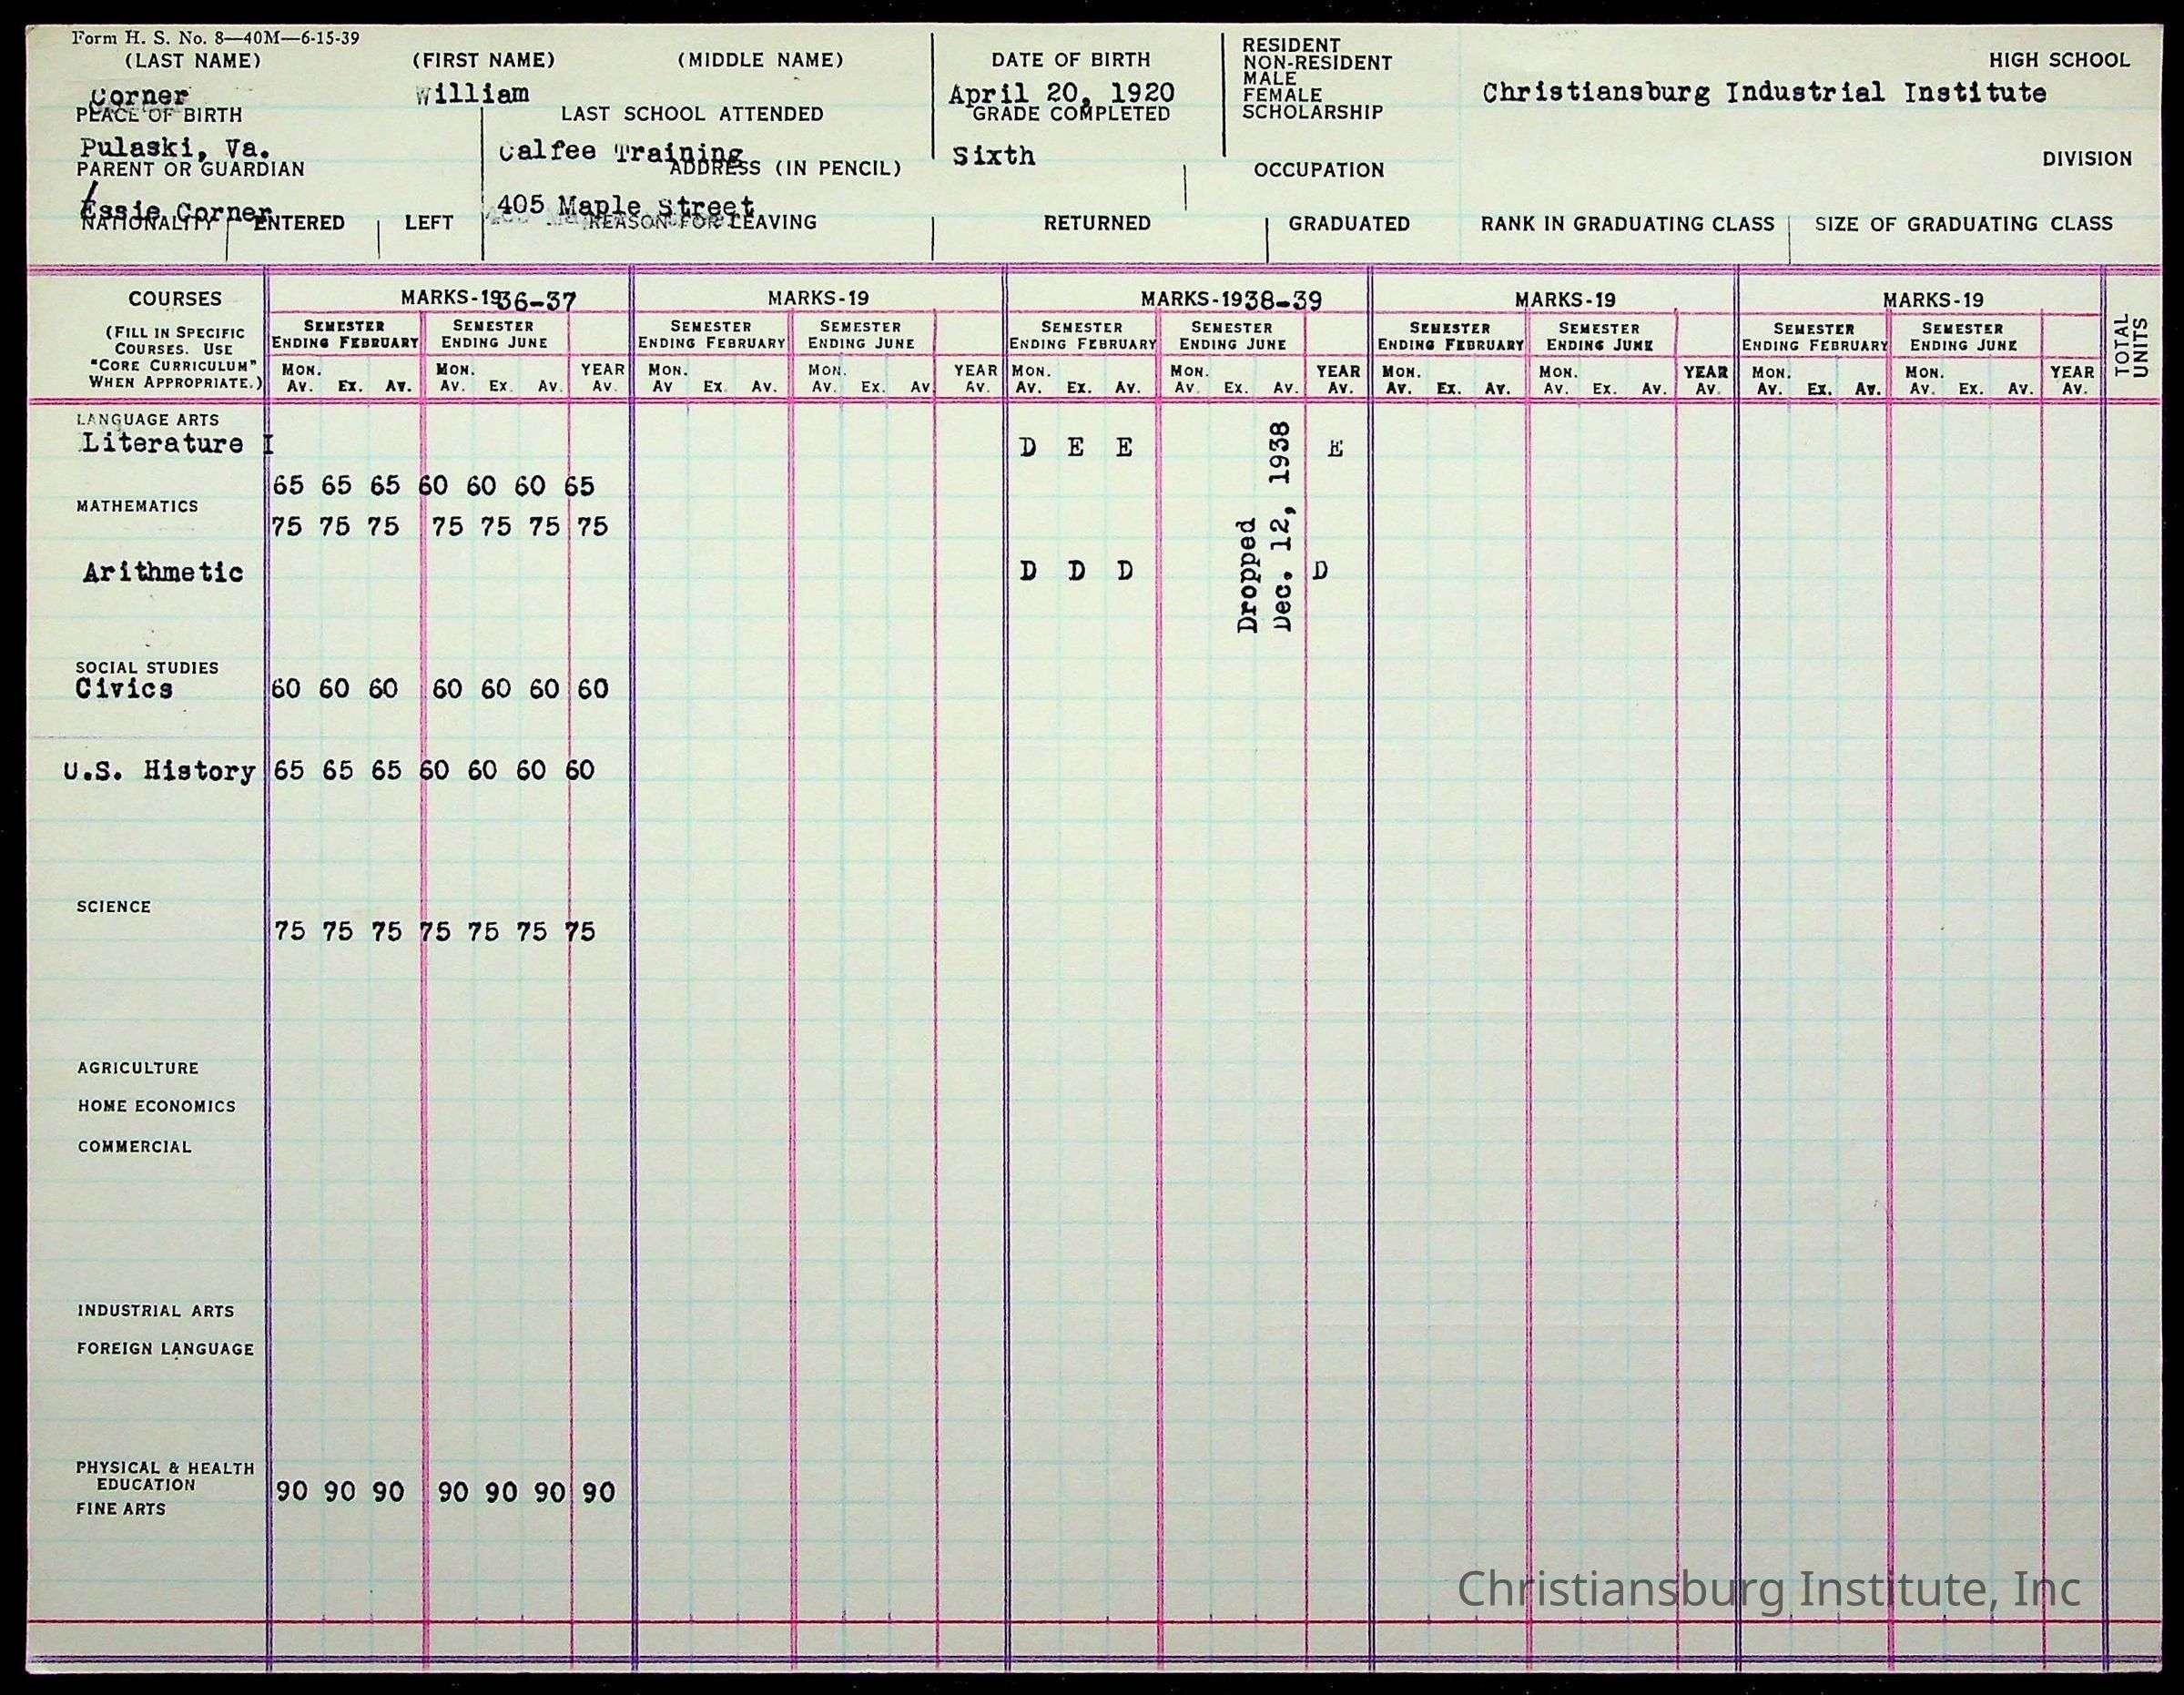 Form H. S. No. 8—40M—6-15-39
(LAST NAME) (FIRST NAME) (MIDDLE NAME) DATE OF BIRTH RESIDENT HIGH SCHOOL
NON-RESIDENT
MALE
Corner William April 20, 1920 FEMALE Christiansburg Industrial Institute
PLACE OF BIRTH LAST SCHOOL ATTENDED GRADE COMPLETED SCHOLARSHIP
Pulaski, Va. Calfee Training Sixth DIVISION
PARENT OR GUARDIAN ADDRESS (IN PENCIL) OCCUPATION
Essie Corner 405 Maple Street
NATIONALITY ENTERED LEFT REASON FOR LEAVING RETURNED GRADUATED RANK IN GRADUATING CLASS SIZE OF GRADUATING CLASS
COURSES MARKS-1936-37 MARKS-19 MARKS-1938-39 MARKS-19 MARKS-19 TOTAL UNITS
(FILL IN SPECIFIC COURSES. USE "CORE CURRICULUM" WHEN APPROPRIATE.)
SEMESTER ENDING FEBRUARY SEMESTER ENDING JUNE SEMESTER ENDING FEBRUARY SEMESTER ENDING JUNE SEMESTER ENDING FEBRUARY SEMESTER ENDING JUNE SEMESTER ENDING FEBRUARY SEMESTER ENDING JUNE SEMESTER ENDING FEBRUARY SEMESTER ENDING JUNE
MON. AV. EX. AV. MON. AV. EX. AV. YEAR AV. MON. AV EX. AV. MON. AV. EX. AV YEAR AV. MON. AV. EX. AV. MON. AV. EX. AV. YEAR AV. MON. AV. EX. AV. MON. AV. EX. AV. YEAR AV. MON. AV. EX. AV. MON. AV. EX. AV. YEAR AV.
LANGUAGE ARTS
Literature I D E E E
65 65 65 60 60 60 65
MATHEMATICS
75 75 75 75 75 75 75
Arithmetic D D D D
Dropped
Dec. 12, 1938
SOCIAL STUDIES
Civics 60 60 60 60 60 60 60
U.S. History 65 65 65 60 60 60 60
SCIENCE
75 75 75 75 75 75 75
AGRICULTURE
HOME ECONOMICS
COMMERCIAL
INDUSTRIAL ARTS
FOREIGN LANGUAGE
PHYSICAL & HEALTH
EDUCATION 90 90 90 90 90 90 90
FINE ARTS
Christiansburg Institute, Inc